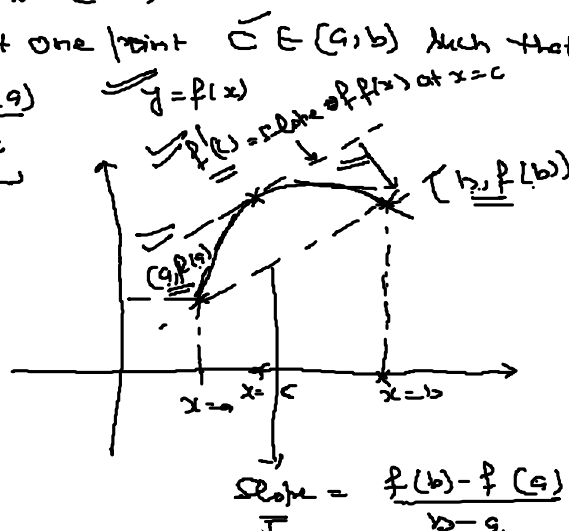 t one point C ∈ (a,b) such that
a)
y = f(x)
f'(c) = slope of f(x) at x=c
(b, f(b))
(a, f(a))
x=a x=c x=b
Slope = f(b)-f(a)
b-a